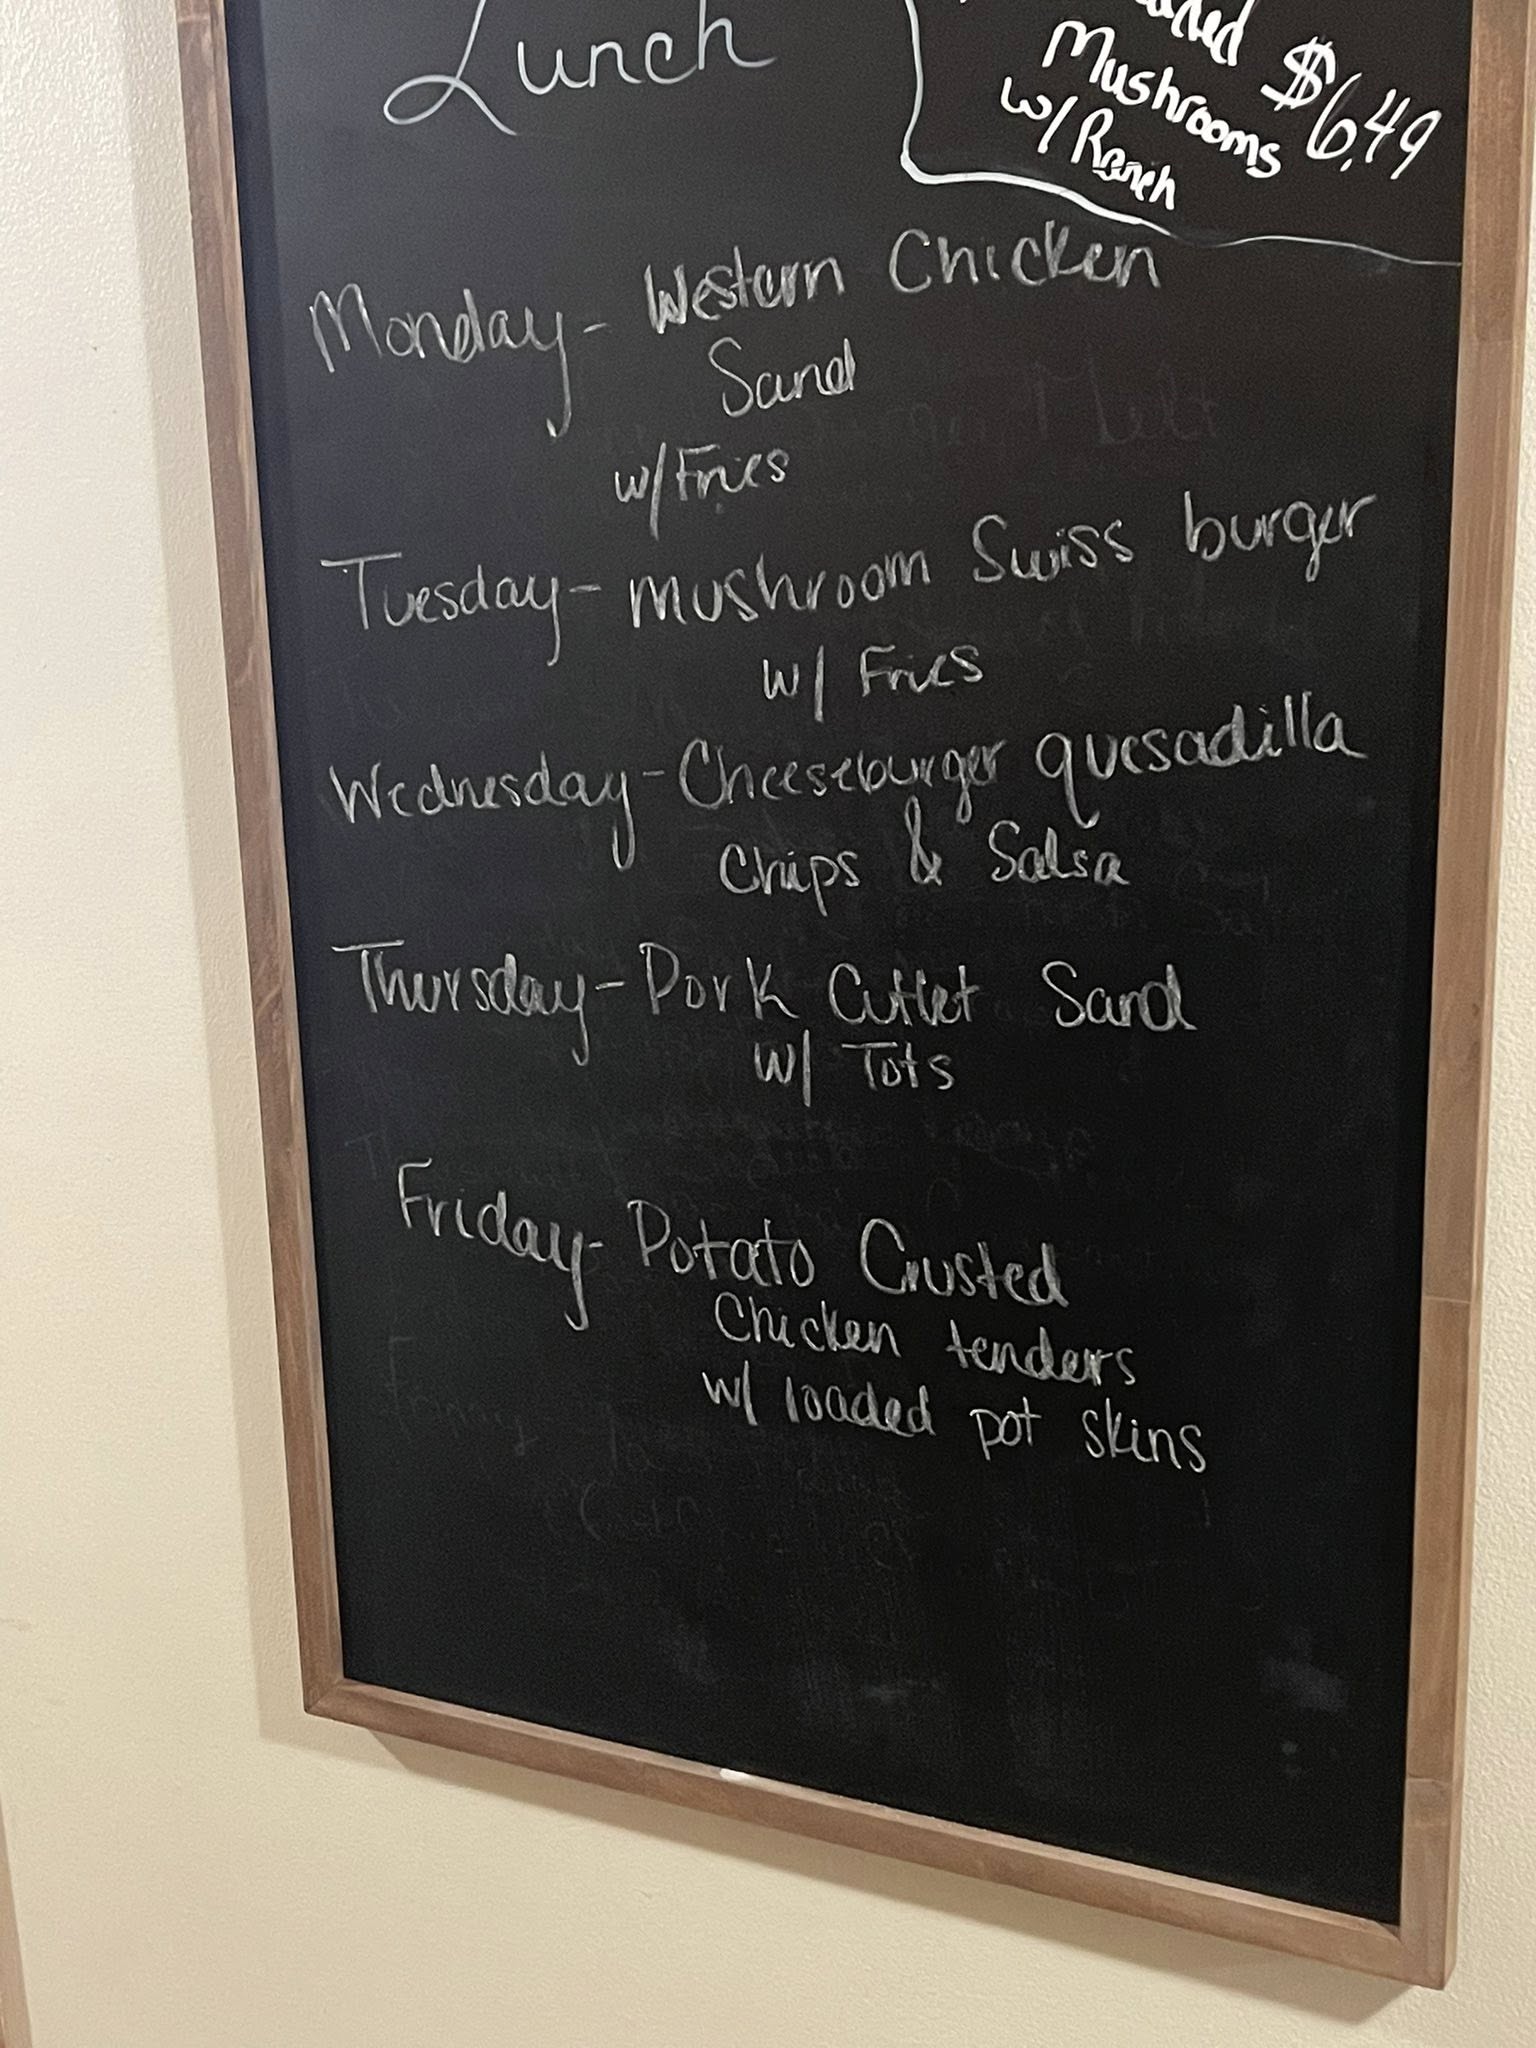 Lunch
$6.49
Mushrooms
w/ Ranch
Monday - Western Chicken
Sand
w/ Fries
Tuesday - mushroom Swiss burger
w/ Fries
Wednesday - Cheeseburger quesadilla
Chips & Salsa
Thursday - Pork Cutlet Sand
w/ Tots
Friday - Potato Crusted
Chicken tenders
w/ loaded pot skins